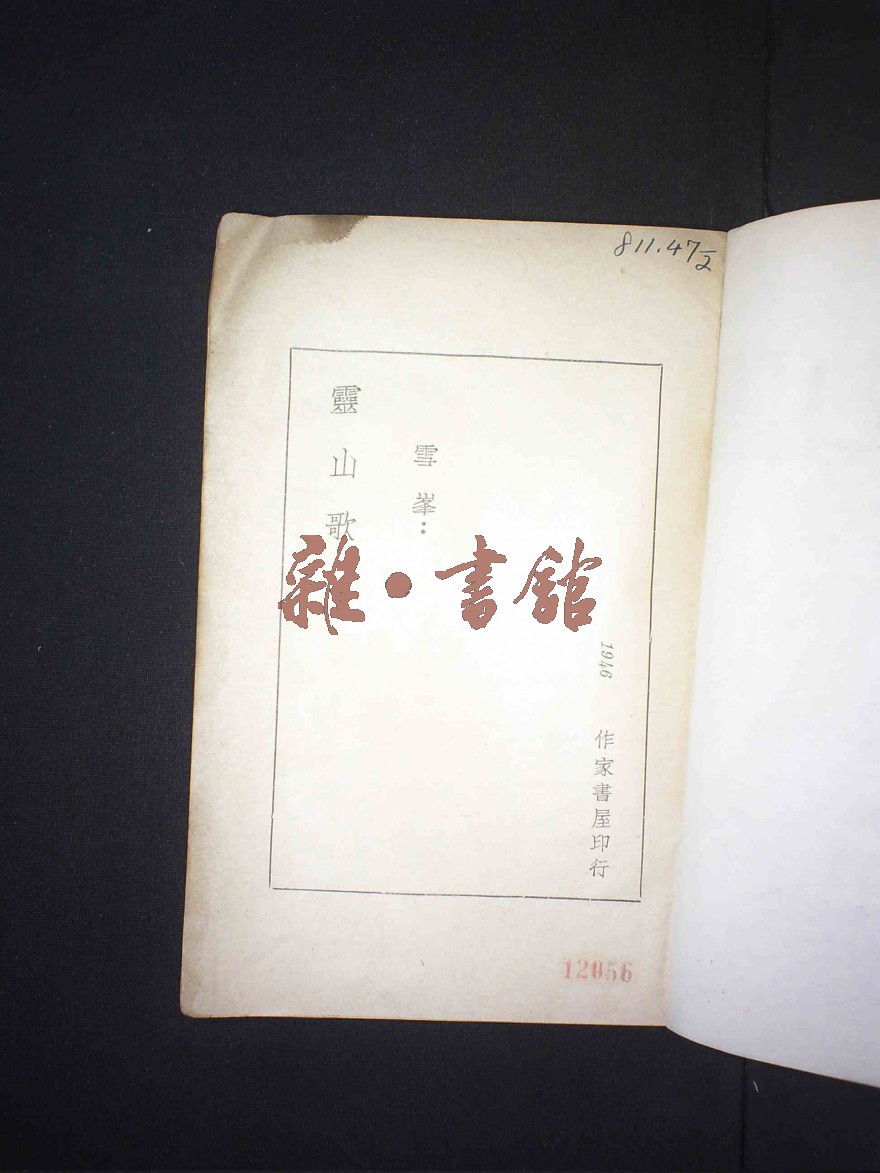 811.47 1/2
靈山歌
雪峯：
1946 作家書屋印行
雜・書舘
12056